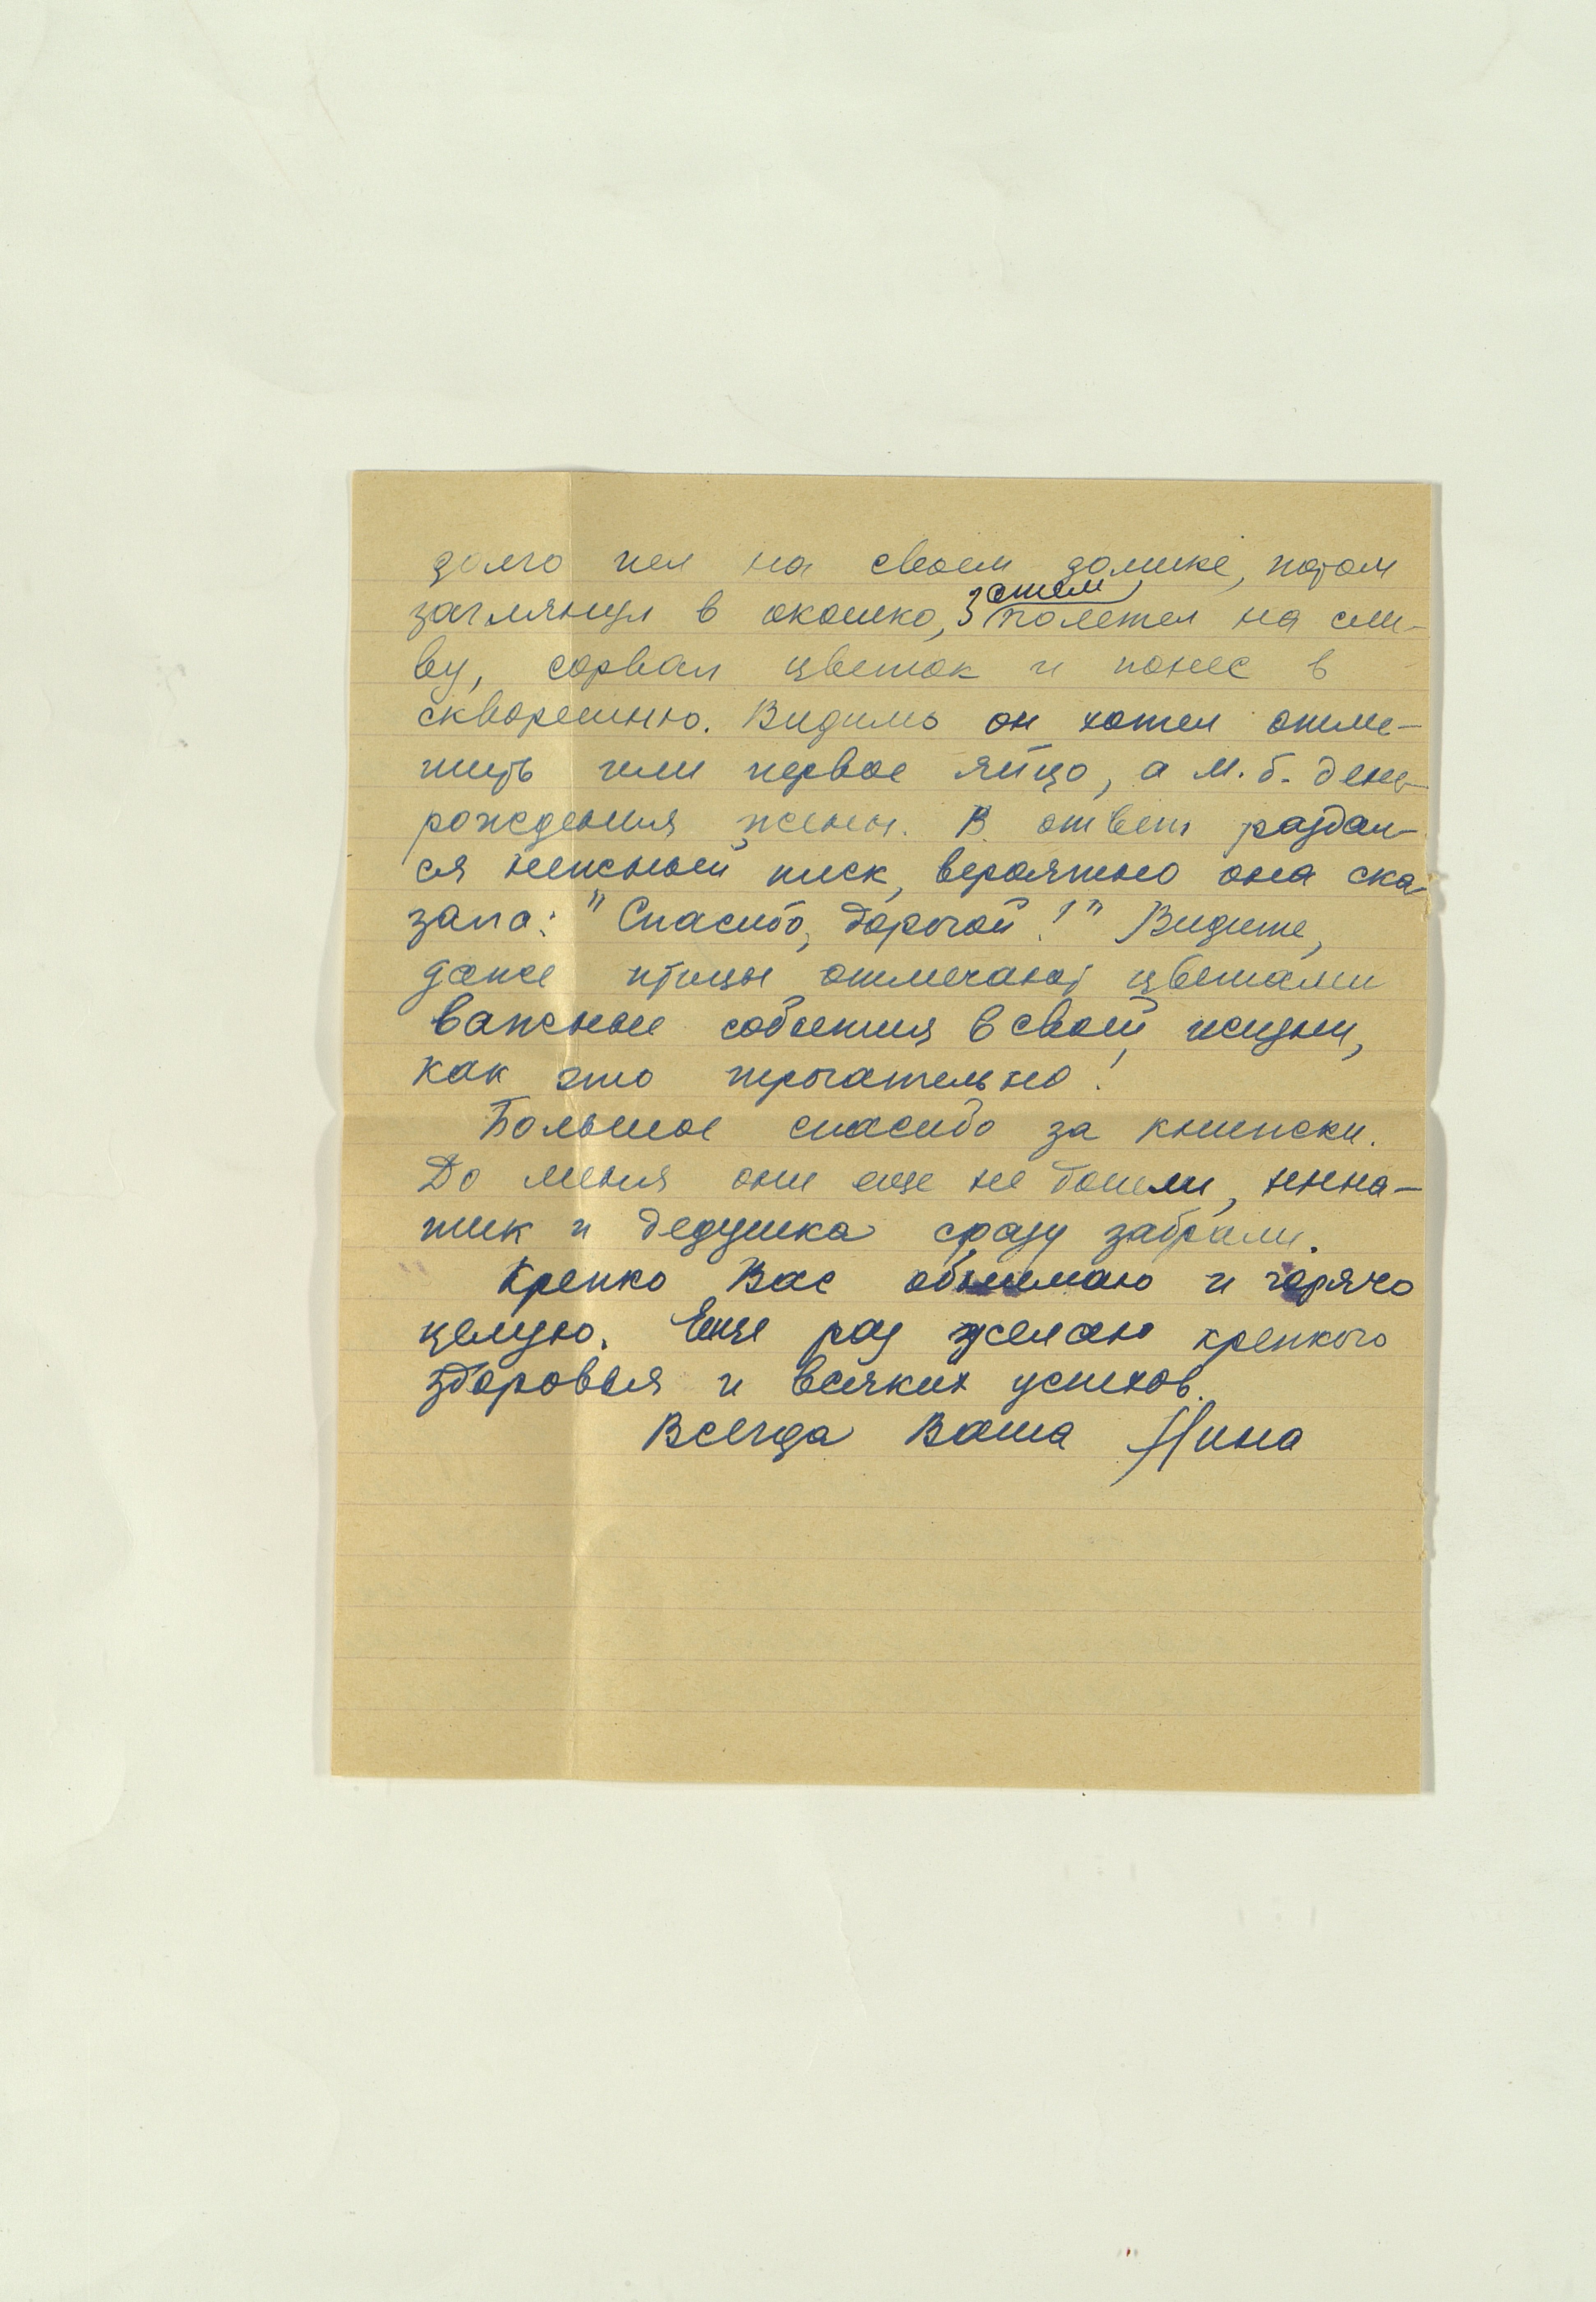 долго пел на своем домике, потом
заглянул в окошко, затем полетел на сли-
ву, сорвал цветок и понес в
скворешню. Видимо он хотел отме-
тить или первое яйцо, а м.б. день
рождения жены. В ответ раздал-
ся нежный писк, вероятно она ска-
зала: "Спасибо, дорогой!" Видите,
даже птицы отмечают цветами
важные события в своей жизни,
как это трогательно!
Большое спасибо за книжки.
До меня они еще не дошли,
и дедушка сразу забрали.
Крепко Вас обнимаю и горячо
целую. Еще раз желаю крепкого
здоровья и всяких успехов.
Всегда Ваша Нина